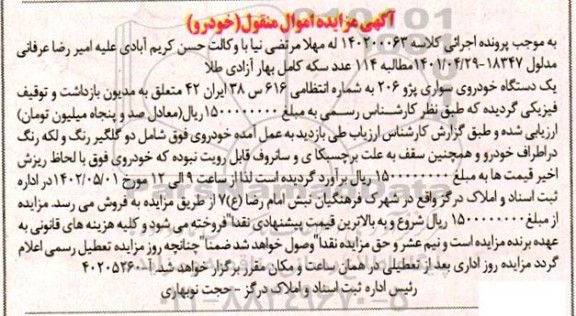 آگهی مزایده اموال منقول(خودرو)
به موجب پرونده اجرائی کلاسه ۱۴۰۲۰۰۰۶۳ له مهلا مرتضی نیا با وکالت حسن کریم آبادی علیه امیر رضا عرفانی
مدلول ۱۸۳۴۷-۱۴۰۱/۰۴/۲۹مطالبه ۱۱۴ عدد سکه کامل بهار آزادی طلا
یک دستگاه خودروی سواری پژو ۲۰۶ به شماره انتظامی ۶۱۶ س ۳۸ ایران ۴۲ متعلق به مدیون بازداشت و توقیف
فیزیکی گردیده که طبق نظر کارشناس رسمی به مبلغ ۱۵۰۰۰۰۰۰۰۰ ریال(معادل صد و پنجاه میلیون تومان)
ارزیابی شده و طبق گزارش کارشناس ارزیاب طی بازدید به عمل آمده خودروی فوق شامل دو گلگیر رنگ و لکه رنگ
دراطراف خودرو و همچنین سقف به علت برچسبکا ی و سانروف قابل رویت نبوده که خودروی فوق با لحاظ ریزش
اخیر قیمت ها به مبلغ ۱۵۰۰۰۰۰۰۰۰ ریال برآورد گردیده است لذا از ساعت ۹ الی ۱۲ مورخ ۱۴۰۲/۰۵/۰۱در اداره
ثبت اسناد و املاک درگز واقع در شهرک فرهنگیان نبش امام رضا (ع)۷ از طریق مزایده به فروش می رسد. مزایده
از مبلغ۱۵۰۰۰۰۰۰۰۰ ریال شروع و به بالاترین قیمت پیشنهادی نقدا"فروخته می شود و کلیه هزینه های قانونی به
عهده برنده مزایده است و نیم عشر و حق مزایده نقدا"وصول خواهد شد ضمنا"چنانچه روز مزایده تعطیل رسمی اعلام
گردد مزایده روز اداری بعد از تعطیلی در همان ساعت و مکان مقرر برگزار خواهد شد. آ-۴۰۲۰۵۲۶۰
رئیس اداره ثبت اسناد و املاک درگز - حجت نوبهاری